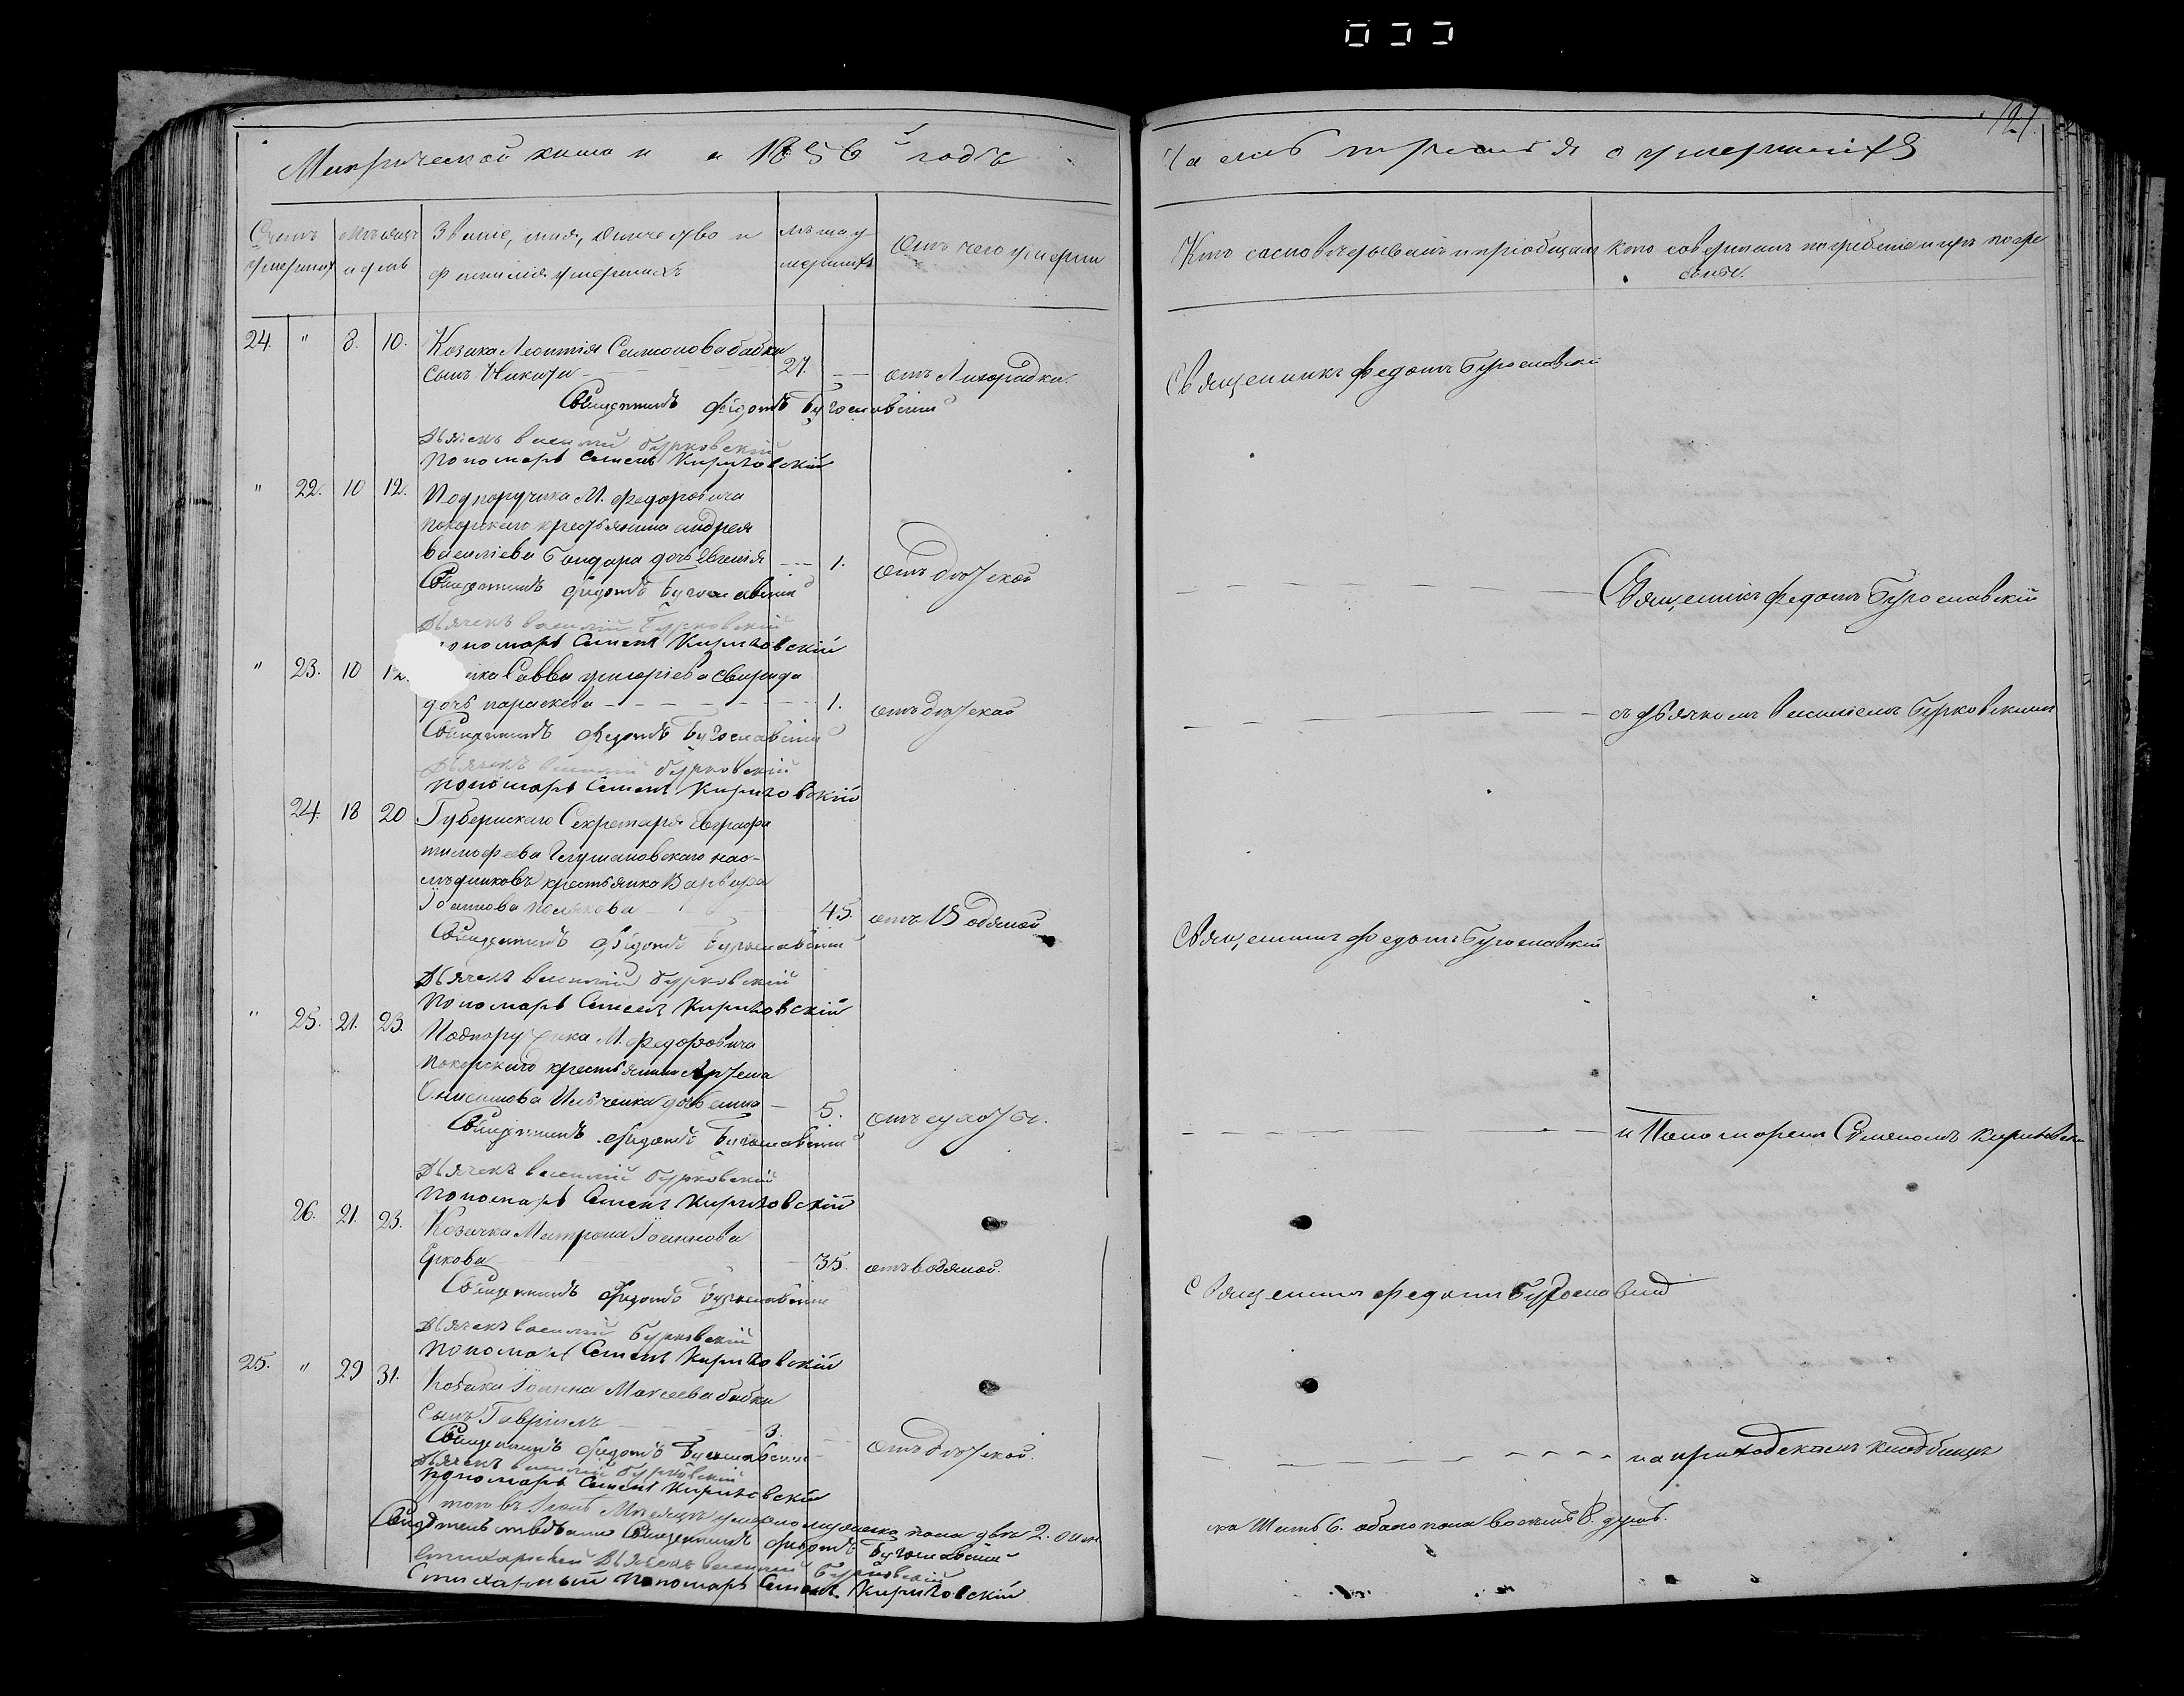 Метрической книги на 1856й годъ
Часть третья о умершихъ
121
Счетъ умершихъ
Мѣсяцъ и день
Званіе, имя, отчество и фамилія умершихъ
лѣта умершихъ
Отъ чего умерли
Кто исповѣдывалъ и пріобщалъ
кто совершалъ погребеніе и гдѣ погребены
24. " 8. 10. Козака Леонтія Семионова бабки
сынъ Никита 27. отъ Лихорадки. Священникъ Федотъ Бугославскій
Священникъ Федотъ Бугославскій
Дьячекъ Василій Бурковскій
Пономарь Семенъ Кириловскій
" 22. 10 12. Подпоручика М. Федоровича
покорскаго крестьянина андрея
василіева Бондара дочь Евгенія 1. отъ дѣтской Священникъ Федотъ Бугославскій
Священникъ Федотъ Бугославскій
Дьячекъ Василій Бурковскій
пономарь Семенъ Кириловскій
" 23. 10 12. Саввы григоріева Свирида
дочь параскева 1. отъ дѣтской съ дьячкомъ Василіемъ Бурковскимъ
Священникъ Федотъ Бугославскій
Дьячекъ Василій Бурковскій
пономарь Семенъ Кириловскій
24. 18 20 Губернскаго Секретаря Евграфа
тимофеева нас-
лѣдниковъ крестьянка Варвара
Іоаннова Полякова 45. отъ Водяной Священникъ Федотъ Бугославскій
Священникъ Федотъ Бугославскій
Дьячекъ Василій Бурковскій
Пономарь Семенъ Кириловскій
" 25. 21. 23. Подпоручика М. Федоровича
покорскаго крестьянина Артема
Онисимова Ильченка дочь 5. и Пономаремъ Семеномъ Кириловски
Священникъ Федотъ Бугославскій
Дьячекъ Василій Бурковскій
Пономарь Семенъ Кириловскій
26. 21. 23. Козачка Матрона Іоаннова
35. отъ водяной. Священникъ Федотъ Бугославскій
Священникъ Федотъ Бугославскій
Дьячекъ Василій Бурковскій
Пономарь Семенъ Кириловскій
25. " 29 31. Козака Іоанна Моисеева бабки
сынъ Гавріилъ 3. отъ дѣтской. на приходскомъ кладбищѣ
Священникъ Федотъ Бугославскій
Дьячекъ Василій Бурковскій
пономарь Семенъ Кириловскій
того въ Мѣсяцѣ умерло мужеска пола двѣ 2. а жен
ска шесть 6. обаго пола восемь 8. душъ.
Священникъ Федотъ Бугославскій
Стихарный Дьячекъ Василій Бурковскій
Стихарный пономарь Семенъ Кириловскій